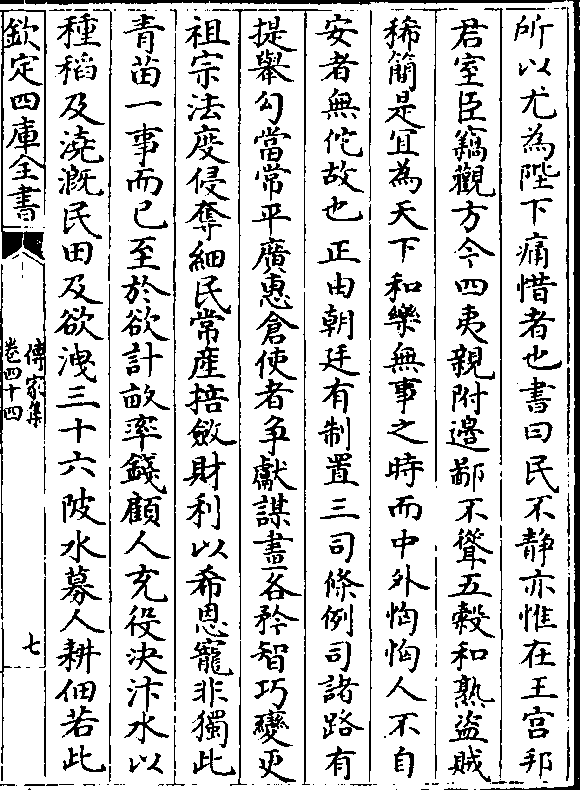 所以尤為陛下痛惜者也書曰民不静亦惟在王宫邦
君室臣竊觀方今四夷親附邊鄙不聳五穀和熟盗賊
稀簡是宜為天下和樂無事之時而中外恟恟人不自
安者無佗故也正由朝廷有制置三司條例司諸路有
提舉勾當常平廣惠倉使者争獻謀畫各矜智巧變更
祖宗法度侵奪細民常産掊斂財利以希恩寵非獨此
青苗一事而已至於欲計畝率錢顧人充役決汴水以
種稻及澆溉民田及欲洩三十六陂水募人耕佃若此
欽定四庫全書
傳家集
卷四十四
七